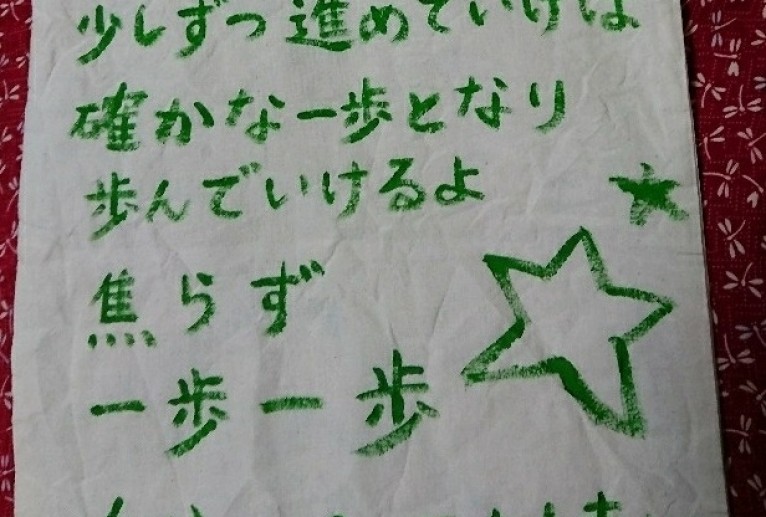 少しずつ進めていけば
確かな一歩となり
歩んでいけるよ
焦らず
一歩一歩